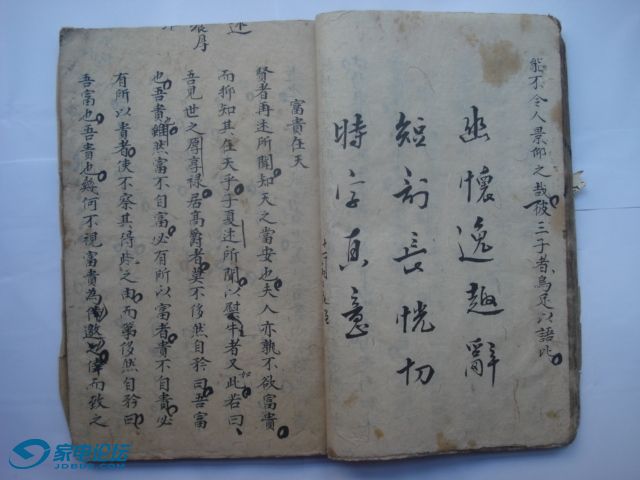 能不令人景仰之哉彼三子者烏足以語此
幽懷逸趣辭
短言長恍切
時字真意
富貴在天
賢者再述所聞知天之當安也夫人亦孰不欲富貴
而抑知其在天乎子夏述所聞以慰牛者又此若曰
吾見世之厚享祿居高爵者莫不侈然自矜曰吾富
也吾貴雖然富不自富必有所以富者貴不自貴必
有所以貴者使不察其得與之由而第侈然自矜曰
吾富也吾貴也幾何不視富貴為邀之倖而致之
家电论坛
JDBBS.COM